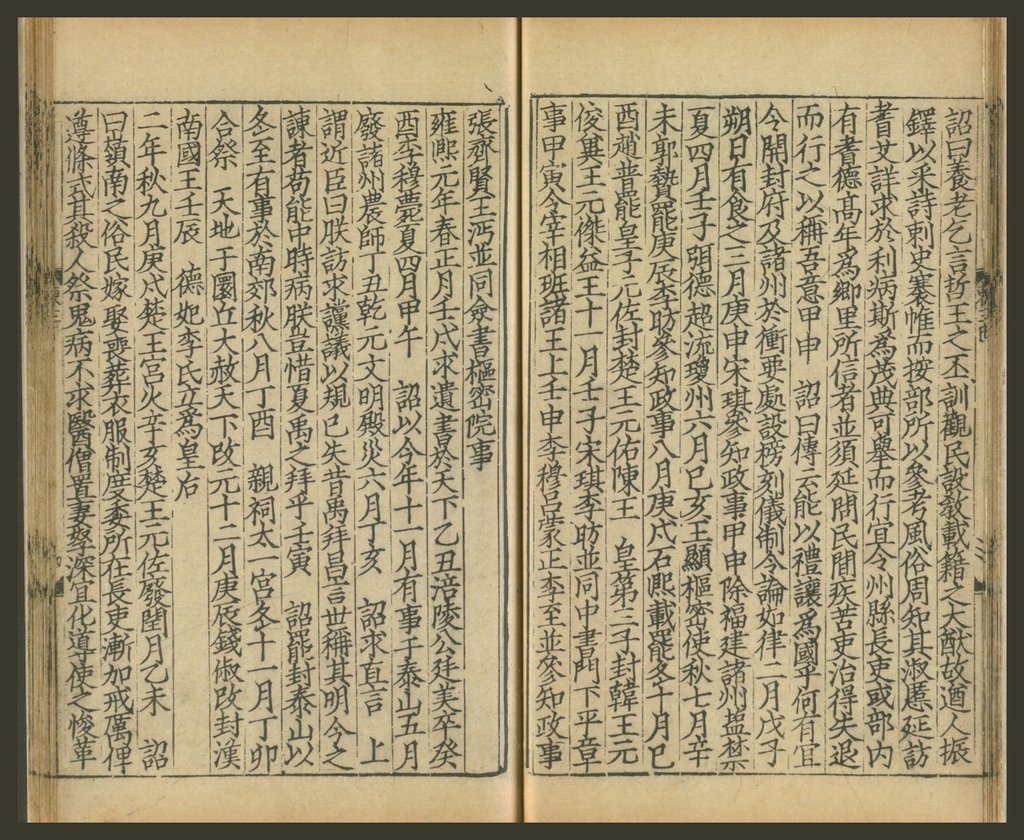 詔曰養老乞言哲王之丕訓觀民設教載籍之大猷故遒人振
鐸以采詩刺史褰帷而按部所以參考風俗周知其淑慝延訪
耆艾詳求於利病斯為茂典可舉而行宜令州縣長吏或部內
有耆德髙年為鄉里所信者並須延問民間疾苦吏治得失退
而行之以稱吾意甲申　詔曰傳云能以禮讓為國乎何有宜
令開封府及諸州於衝要處設榜刻儀制令論如律二月戊子
朔日有食之三月庚申宋琪參知政事甲申除福建諸州鹽禁
夏四月壬子弭德超流瓊州六月己亥王顯樞密使秋七月辛
未郭贄罷庚辰李昉參知政事八月庚戌石熙載罷冬十月己
酉趙普罷皇子元佐封楚王元佑陳王　皇第三子封韓王元
俊冀王元傑益王十一月壬子宋琪李昉並同中書門下平章
事甲寅令宰相班諸王上壬申李穆呂蒙正李至並參知政事
張齊賢王沔並同僉書樞密院事
雍熙元年春正月壬戌求遺書於天下乙丑涪陵公廷美卒癸
酉李穆薨夏四月甲午　詔以今年十一月有事于泰山五月
廢諸州農師丁丑乾元文明殿災六月丁亥　詔求直言　上
謂近臣曰朕訪求讜議以規已失昔禹拜昌言世稱其明今之
諫者苟能中時病朕豈惜夏禹之拜乎壬寅　詔罷封泰山以
冬至有事於南郊秋八月丁酉　親祠太一宮冬十一月丁卯
合祭　天地于圜丘大赦天下改元十二月庚辰錢俶改封漢
南國王壬辰　德妃李氏立為皇后
二年秋九月庚戌楚王宮火辛亥楚王元佐廢閏月乙未　詔
曰嶺南之俗民嫁娶喪葬衣服制度委所在長吏漸加戒厲俾
遵條式其殺人祭鬼病不求醫僧置妻孥深宜化導使之悛革